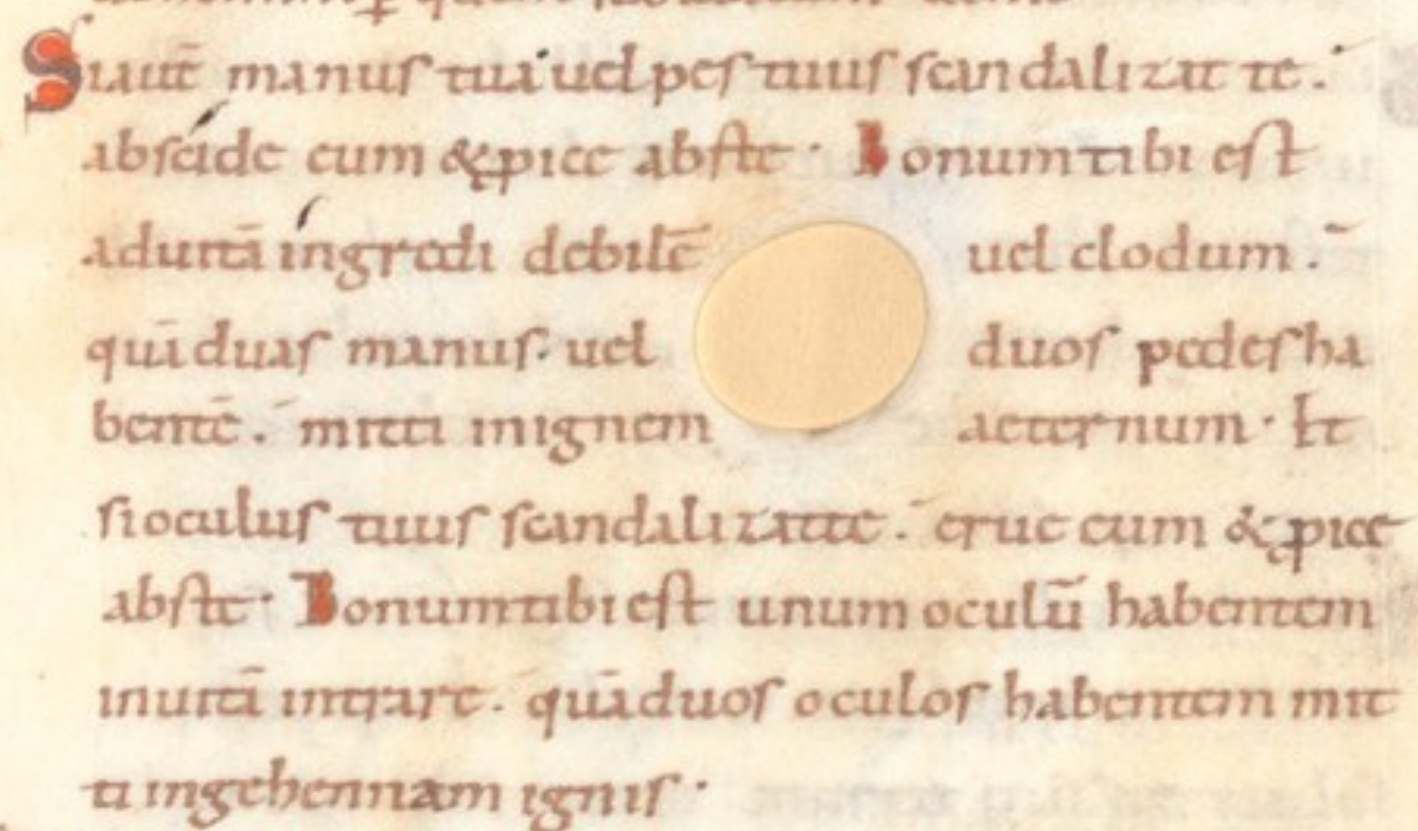 Siaut̄ manus tua uel pes tuus scandalizat te.
abscide eum & ꝓice abste· Bonum tibi est
aduitā ingredi debilē uel clodum.
quā duas manus· uel duos pedes ha
bentē. mitti inignem aeternum· Et
sioculus tuus scandalizatte. erue eum & ꝓice
abste· Bonum tibi est unum oculū habentem
inuitā intrare. quā duos oculos habentem mit
ti ingehennam ignis·